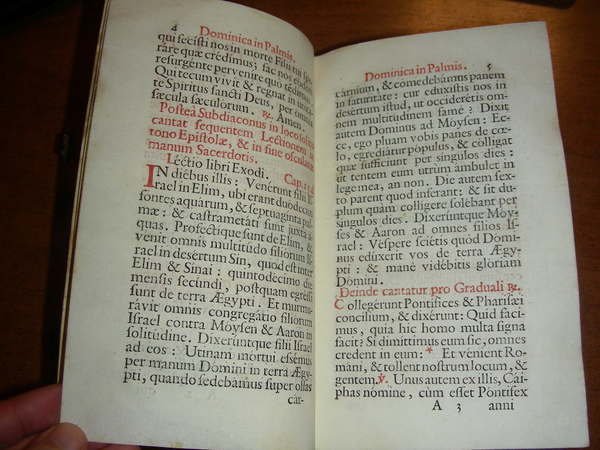 4 Dominica in Palmis.
qui fecisti nos in morte Filii tui spe-
rare quæ crédimus; fac nos eodem
resurgente pervenire quo téndimus.
Qui tecum vivit & regnat in unitá-
te Spíritus sancti Deus, per omnia
sǽcula sæculorum. ℟. Amen.
Posteà Subdiaconus in loco solito
cantat sequentem Lectionem in
tono Epistolæ, & in fine osculatur
manum Sacerdotis.
Léctio libri Exodi.
IN diébus illis: Venérunt filii Is-
rael in Elim, ubi erant duodecim
fontes aquárum, & septuaginta pal-
mæ: & castrametáti sunt juxta a-
quas. Profectíque sunt de Elim, &
venit omnis multitúdo filiórum Is-
rael in desértum Sin, quod est inter
Elim & Sinai: quintodécimo die
mensis secúndi, postquam egréssi
sunt de terra Ægýpti. Et murmu-
rávit omnis congregátio filiórum
Israel contra Móysen & Aaron in
solitúdine. Dixerúntque filii Israel
ad eos: Utinam mórtui essémus
per manum Dómini in terra Ægý-
pti, quando sedebámus super ollas
cár-
Dominica in Palmis. 5
cárnium, & comedebámus panem
in saturitáte: cur eduxístis nos in
desértum istud, ut occiderétis om-
nem multitúdinem fame? Dixit
autem Dóminus ad Móysen: Ec-
ce, ego pluam vobis panes de cœ-
lo, egrediátur pópulus, & cólligat
quæ sufficiunt per síngulos dies:
ut tentem eum utrum ámbulet in
lege mea, an non. Die autem sex-
to parent quod ínferant: & sit du-
plum quàm collígere solébant per
síngulos dies. Dixerúntque Móy-
ses & Aaron ad omnes filios
Israel: Véspere sciétis quòd Dómi-
nus edúxerit vos de terra Ægý-
pti: & manè vidébitis glóriam
Dómini.
Deinde cantatur pro Graduali ℟.
COllegérunt Pontífices & Pharisæi
concílium, & dixérunt: Quid fáci-
mus, quia hic homo multa signa
facit? Si dimíttimus eum sic, omnes
credent in eum: * Et vénient Ro-
máni, & tollent nostrum locum, &
gentem. ℣. Unus autem ex illis, Cái-
phas nómine, cùm esset Póntifex
A 3 anni